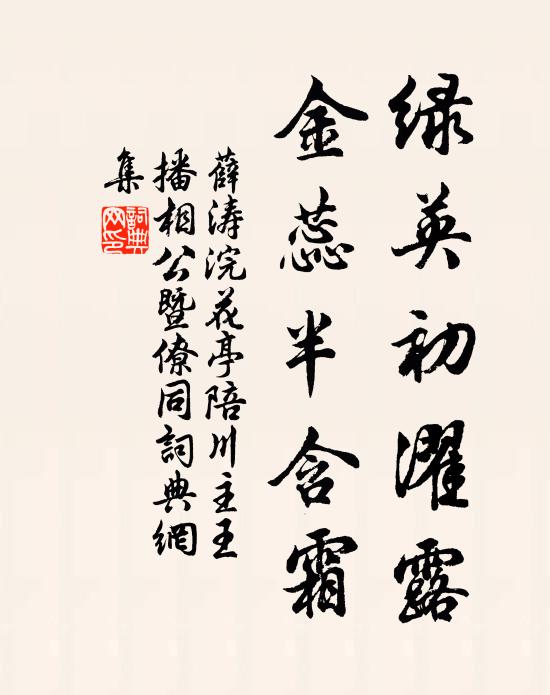 绿英初濯露
金蕊半含霜
薛涛浣花亭陪川主王
播相公暨僚同詞典網
集
詞典网印